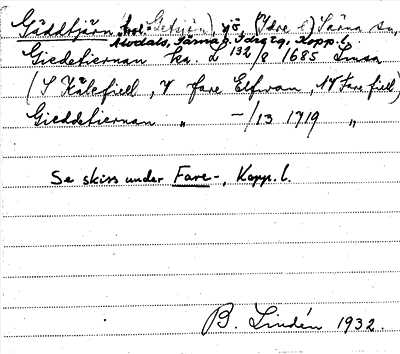 Gäddtjärn, sjö, (Idre s) Särna sn,
Älvdals, Särna o. Idre tg, Kopp. l.
Giedetiernan ka. L 132/8 1685 Lima
(S Kälefiell, V fare Elfwan, N Fare fiell)
Gieddetiernan " -/13 1719 "
Se skiss under Fare-, Kopp. l.
B. Lindén 1932.